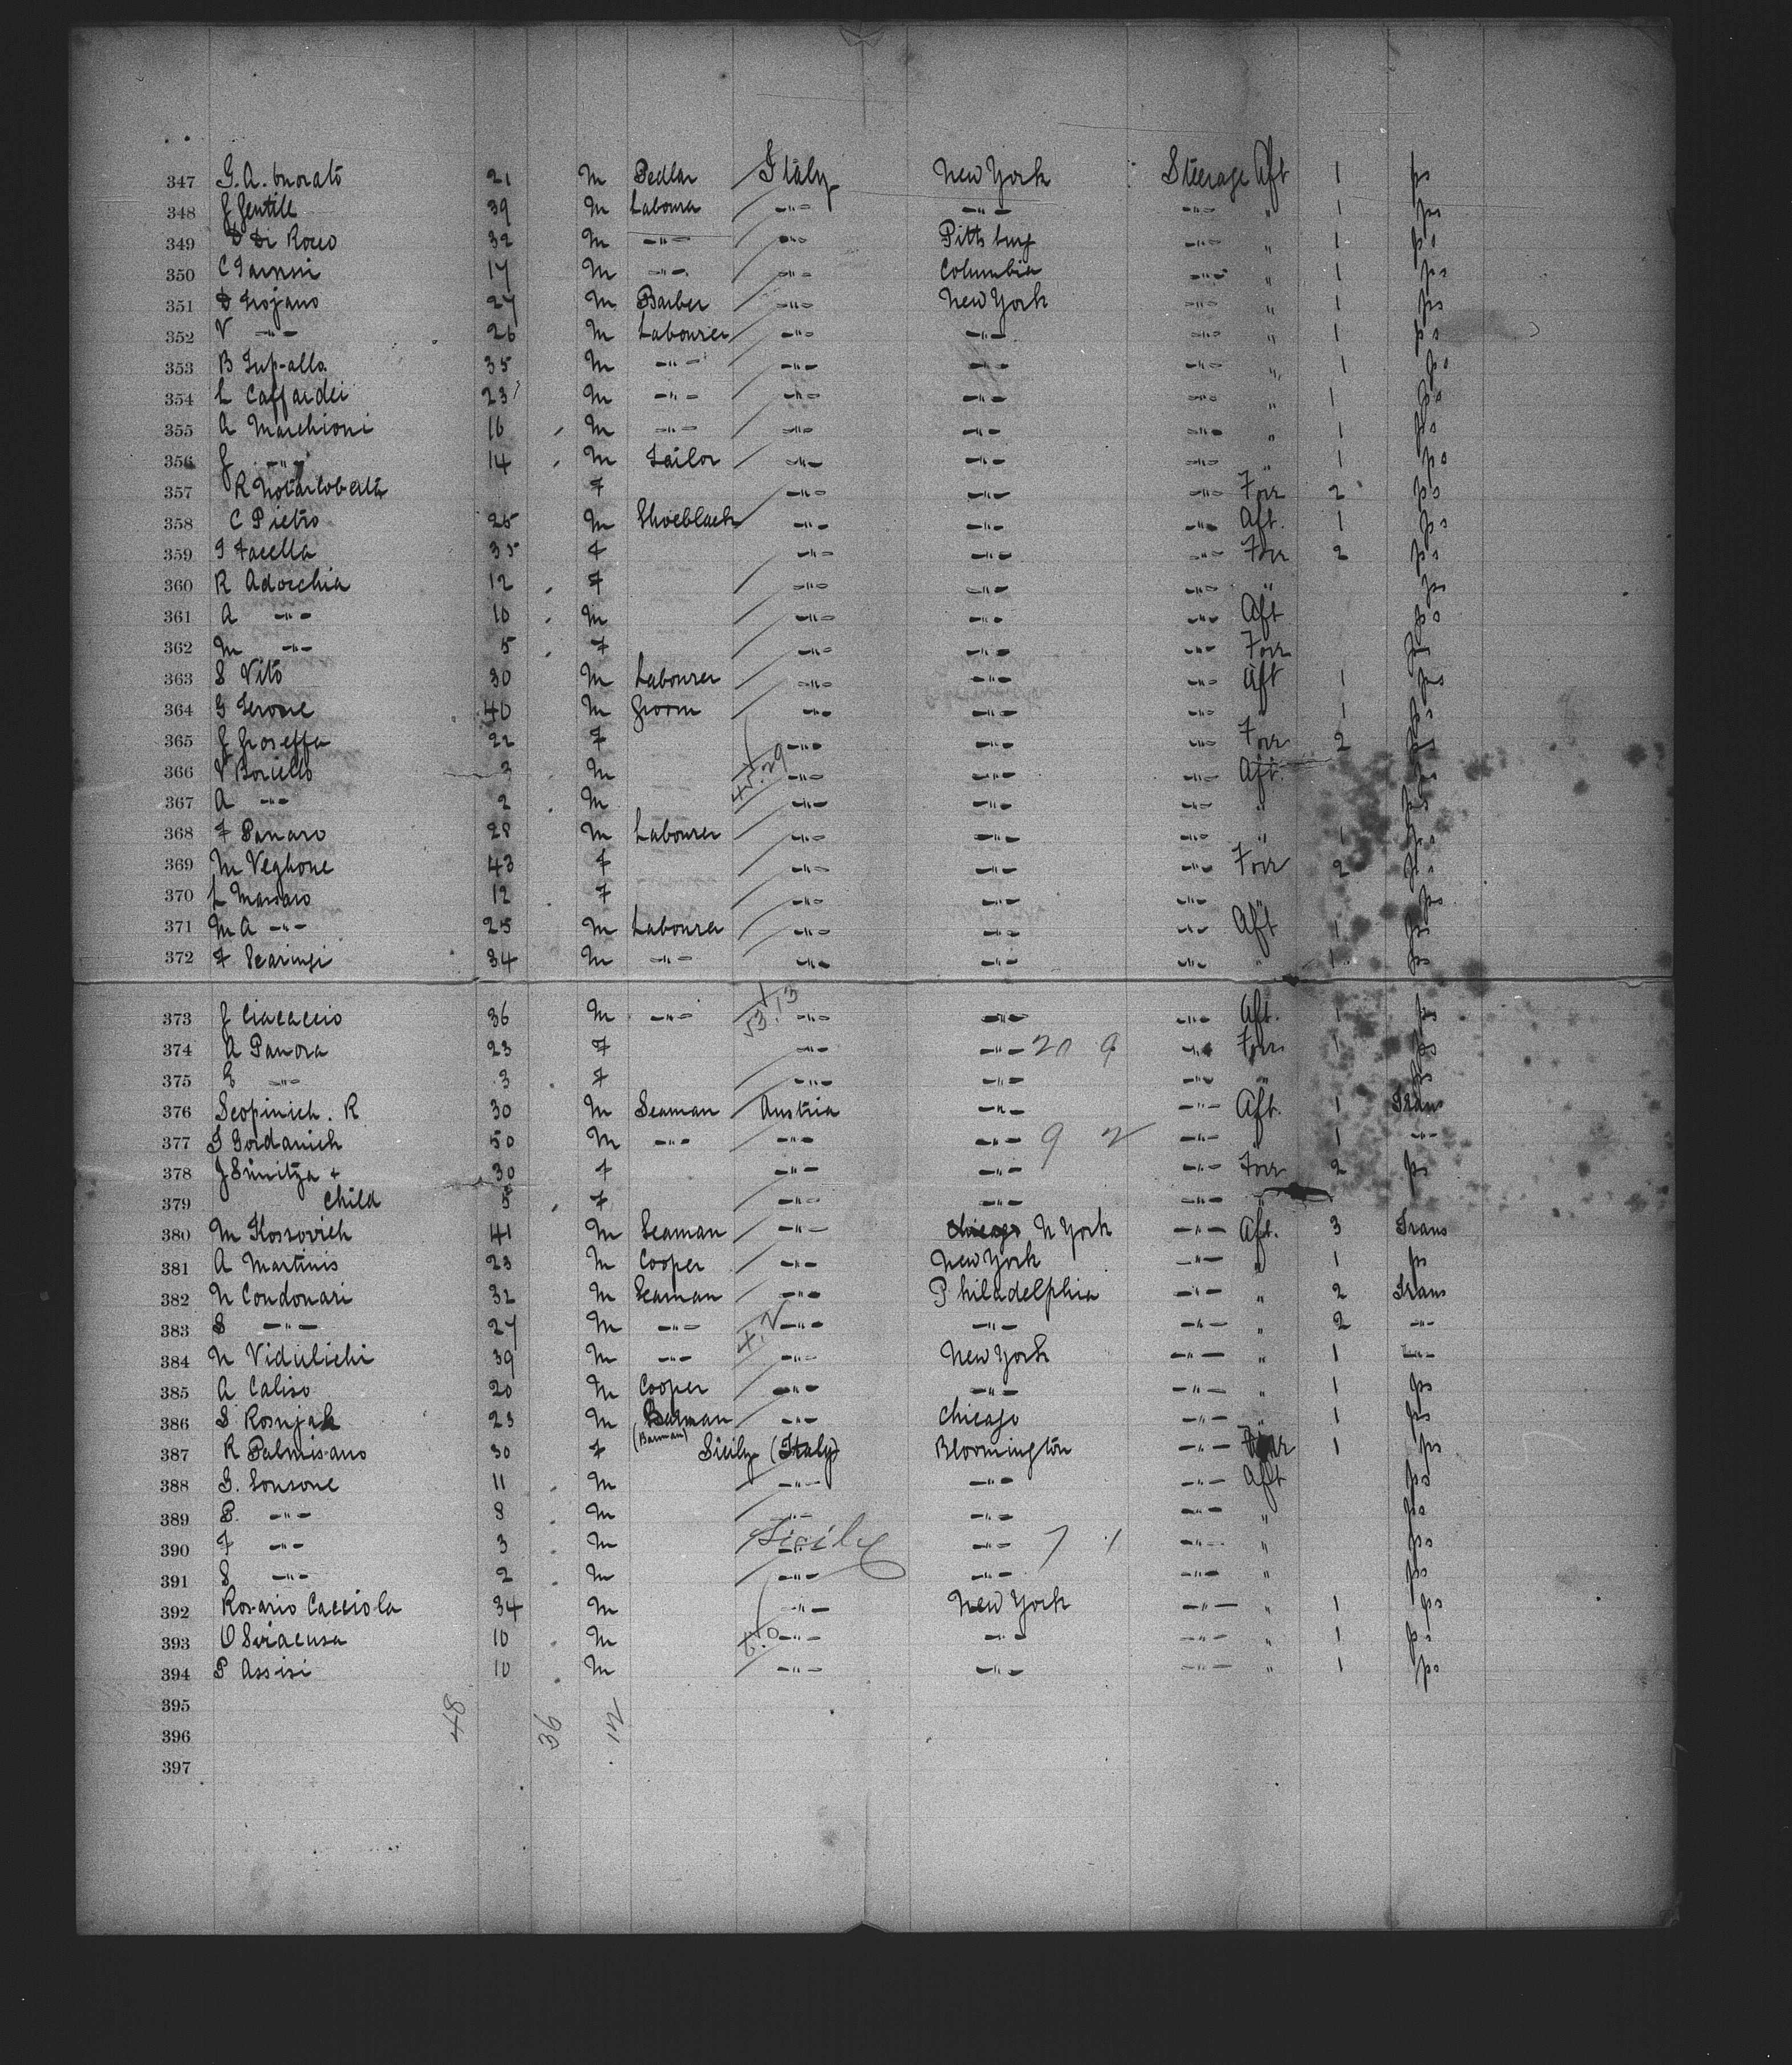 347 G. A. Onorato 21 M Pedlar Italy New York Steerage Aft 1 ps
348 J Gentile 39 M Labourer -"- -"- -"- " 1 ps
349 D Di Rocco 32 M -"- -"- Pittsburg -"- " 1 ps
350 C 17 M -"- -"- Columbia -"- " 1 ps
351 D Trojano 27 M Barber -"- New York -"- " 1 ps
352 V -"- 26 M Labourer -"- -"- -"- " 1 ps
353 B 35 M -"- -"- -"- -"- " 1 ps
354 L Caffardei 23 M -"- -"- -"- -"- " 1 ps
355 A Marchioni 16 M -"- -"- -"- -"- " 1 ps
356 J -"- 14 M Tailor -"- -"- -"- " 1 ps
357 R F -"- -"- -"- Forr 2 ps
358 C Pietro 25 M Shoeblack -"- -"- -"- Aft. 1 ps
359 35 F -"- -"- -"- Forr 2 ps
360 R Adocchia 12 F -"- -"- -"- " ps
361 A -"- 10 M -"- -"- -"- Aft ps
362 M -"- 5 F -"- -"- -"- Forr ps
363 S Vito 30 M Labourer -"- -"- -"- Aft 1 ps
364 G 40 M Groom -"- -"- -"- " 1 ps
365 J 22 F -"- -"- -"- Forr 2 ps
366 V Boriello 3 M -"- -"- -"- Aft. ps
367 A -"- 2 M -"- -"- -"- " ps
368 F Panaro 28 M Labourer -"- -"- -"- " 1 ps
369 M Veghone 43 F -"- -"- -"- Forr 2 ps
370 L Massaro 12 F -"- -"- -"- " ps
371 M A -"- 25 M Labourer -"- -"- -"- Aft 1 ps
372 F Scaringi 34 M -"- -"- -"- -"- " 1 ps
373 J Ciacaccio 36 M -"- -"- -"- -"- Aft. 1 ps
374 A Panora 23 F -"- -"- 20 9 -"- Forr 1 ps
375 E -"- 3 F -"- -"- -"- " ps
376 Scopinich. R 30 M Seaman Austria -"- -"- Aft. 1 Trans
377 50 M -"- -"- -"- 9 2 -"- " 1 -"-
378 J Smitza + 30 F -"- -"- -"- Forr 2 ps
379 Child 5 F -"- -"- -"- " 
380 M Kossovich 41 M Seaman -"- Chicago N York -"- Aft. 3 Trans
381 A Martinis 23 M Cooper -"- New York -"- " 1 ps
382 N Condonari 32 M Seaman -"- Philadelphia -"- " 2 Trans
383 S -"- 27 M -"- -"- -"- -"- " 2 -"-
384 N Vidulichi 39 M -"- -"- New York -"- " 1 -"-
385 A Caliso 20 M Cooper -"- -"- -"- " 1 ps
386 S Rosnjak 23 M Barman (Barman) -"- Chicago -"- " 1 ps
387 R Palmisano 30 F Sicily (Italy) Bloomington -"- Forr 1 ps
388 G. Sonsone 11 M -"- -"- -"- Aft ps
389 P. -"- 8 M -"- -"- -"- " ps
390 F -"- 3 M Sicily -"- 7 1 -"- " ps
391 S -"- 2 M -"- -"- -"- " ps
392 Rosario Cacciola 34 M -"- New York -"- " 1 ps
393 O Siracusa 10 M -"- -"- -"- " 1 ps
394 P Assisi 10 M -"- -"- -"- " 1 ps
395
396
397